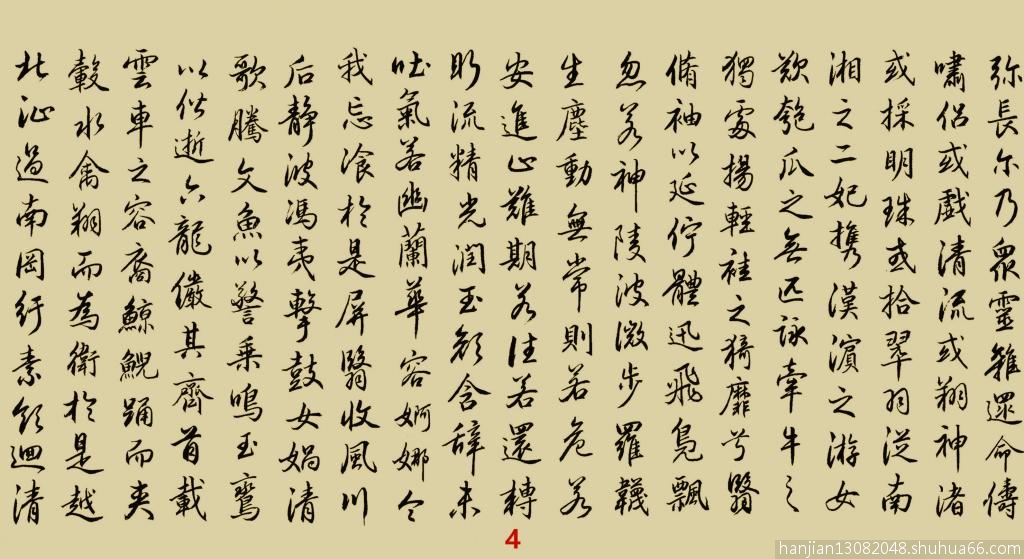 弥長尔乃眾靈雜遝命儔
嘯侶或戲清流或翔神渚
或採明珠或拾翠羽從南
湘之二妃携漢濱之游女
歎匏瓜之無匹詠牽牛之
獨處揚輕袿之猗靡兮翳
脩袖以延佇體迅飛鳧飄
忽若神陵波微步羅韈
生塵動無常則若危若
安進止難期若往若還轉
眄流精光潤玉顏含辭未
吐氣若幽蘭華容婀娜令
我忘飡於是屏翳收風川
后静波馮夷擊鼓女媧清
歌騰文魚以警乘鳴玉鸞
以偕逝六龍儼其齊首載
雲車之容裔鯨鯢踊而夾
轂水禽翔而為衛於是越
北沚過南岡紆素領迴清
4
hanjian13082048.shuhua66.com